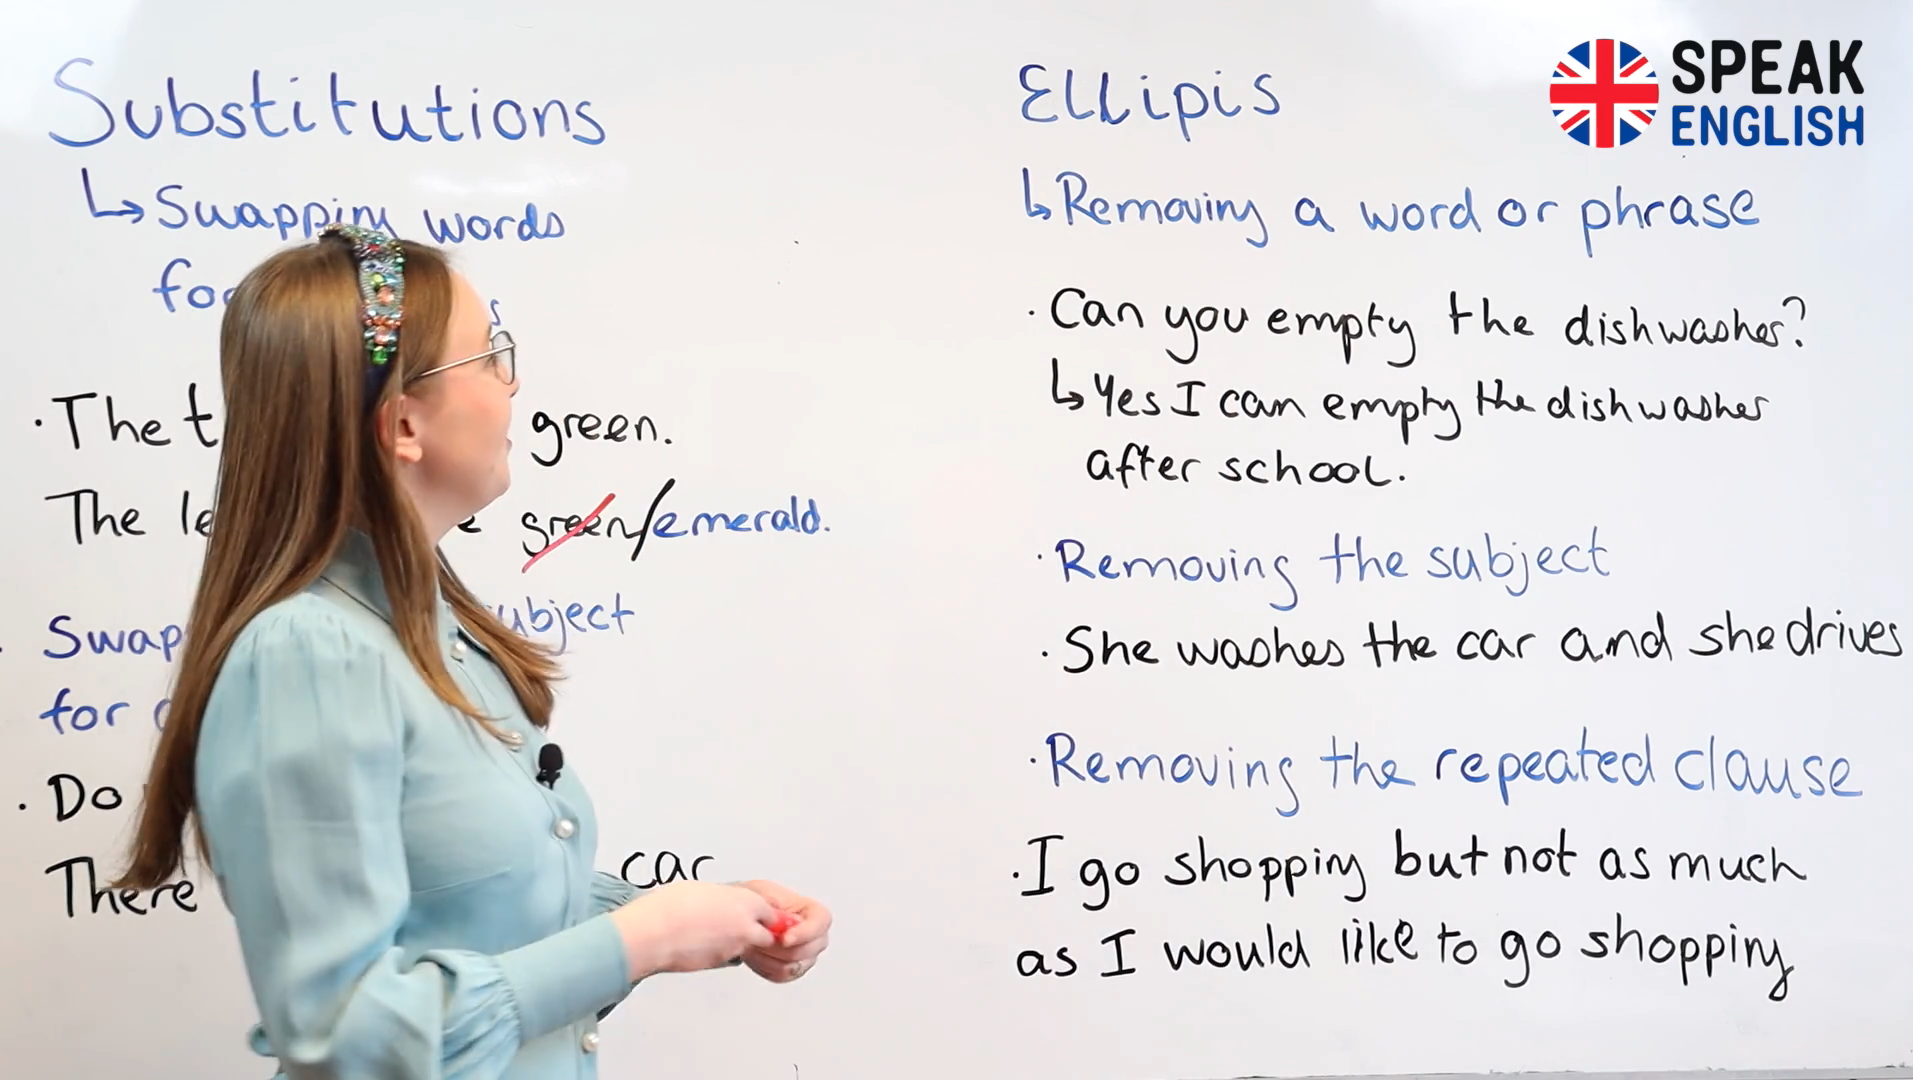 Substitutions
↳ Swapping words
for
· The green.
The green/emerald.
Swap subject
for
· Do
There car
Ellipis
↳ Removing a word or phrase
· Can you empty the dishwasher?
↳ Yes I can empty the dishwasher
after school.
· Removing the subject
· She washes the car and she drives
· Removing the repeated clause
· I go shopping but not as much
as I would like to go shopping
SPEAK
ENGLISH